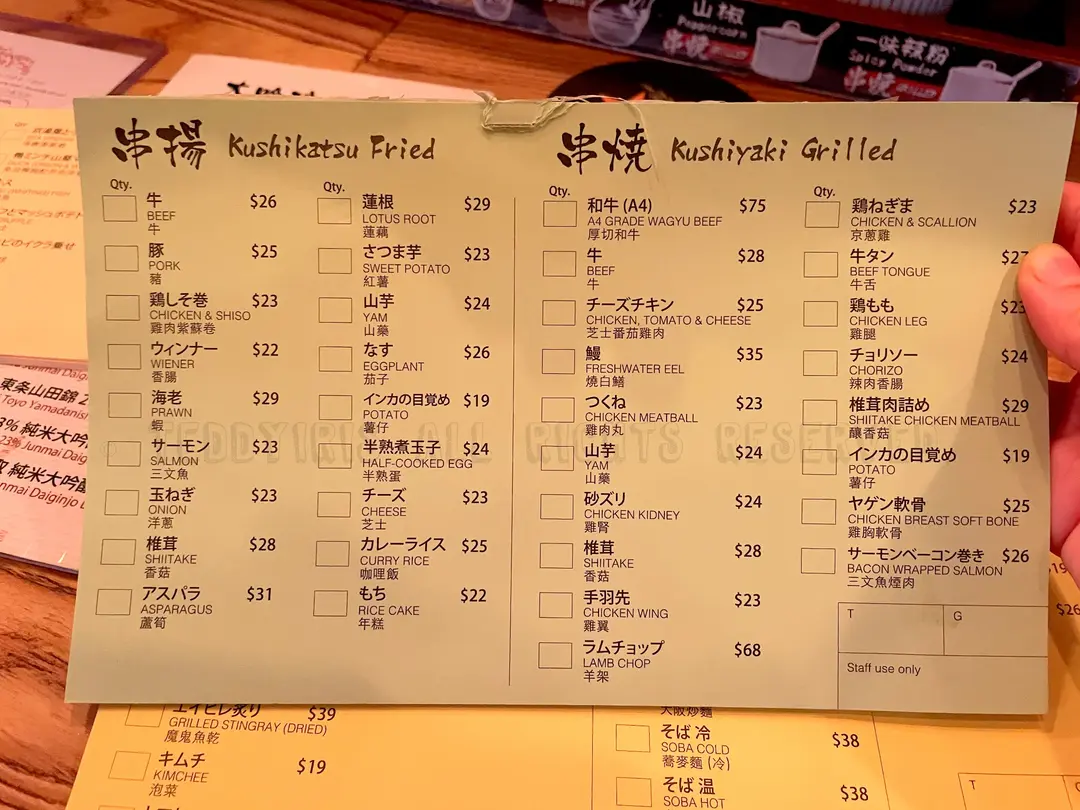 山椒
Peppercorn
串焼
一味辣粉
Spicy Powder
串焼
串揚 Kushikatsu Fried
Qty.
牛 $26
BEEF
牛
豚 $25
PORK
豬
鶏しそ巻 $23
CHICKEN & SHISO
雞肉紫蘇卷
ウィンナー $22
WIENER
香腸
海老 $29
PRAWN
蝦
サーモン $23
SALMON
三文魚
玉ねぎ $23
ONION
洋蔥
椎茸 $28
SHIITAKE
香菇
アスパラ $31
ASPARAGUS
蘆筍
Qty.
蓮根 $29
LOTUS ROOT
蓮藕
さつま芋 $23
SWEET POTATO
紅薯
山芋 $24
YAM
山藥
なす $26
EGGPLANT
茄子
インカの目覚め $19
POTATO
薯仔
半熟煮玉子 $24
HALF-COOKED EGG
半熟蛋
チーズ $23
CHEESE
芝士
カレーライス $25
CURRY RICE
咖哩飯
もち $22
RICE CAKE
年糕
串焼 Kushiyaki Grilled
Qty.
和牛 (A4) $75
A4 GRADE WAGYU BEEF
厚切和牛
牛 $28
BEEF
牛
チーズチキン $25
CHICKEN, TOMATO & CHEESE
芝士番茄雞肉
鰻 $35
FRESHWATER EEL
燒白鱔
つくね $23
CHICKEN MEATBALL
雞肉丸
山芋 $24
YAM
山藥
砂ズリ $24
CHICKEN KIDNEY
雞腎
椎茸 $28
SHIITAKE
香菇
手羽先 $23
CHICKEN WING
雞翼
ラムチョップ $68
LAMB CHOP
羊架
Qty.
鶏ねぎま $23
CHICKEN & SCALLION
京蔥雞
牛タン $27
BEEF TONGUE
牛舌
鶏もも $23
CHICKEN LEG
雞腿
チョリソー $24
CHORIZO
辣肉香腸
椎茸肉詰め $29
SHIITAKE CHICKEN MEATBALL
釀香菇
インカの目覚め $19
POTATO
薯仔
ヤゲン軟骨 $25
CHICKEN BREAST SOFT BONE
雞胸軟骨
サーモンベーコン巻き $26
BACON WRAPPED SALMON
三文魚煙肉
T G
Staff use only
TEDDYIRIS ALL RIGHTS RESERVED
東条山田錦
Toyo Yamadanis
3% 純米大吟
23% Junmai Daig
純米大吟
nmai Daiginjo
エイヒレ炙り $39
GRILLED STINGRAY (DRIED)
魔鬼魚乾
キムチ $19
KIMCHEE
泡菜
大阪炒麵
そば 冷 $38
SOBA COLD
蕎麥麵 (冷)
そば 温 $38
SOBA HOT
$26
T